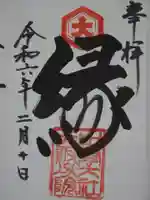 奉拝
大
縁
令和六年二月十日